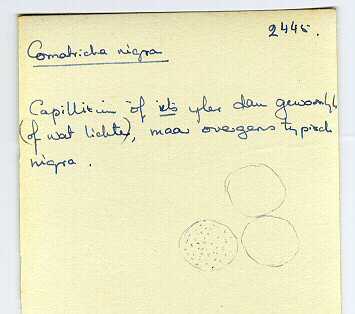 2445.
Comatricha nigra
Capillitium òf iets yler dan gewoonlyk
(of wat lichter), maar overigens typisch
nigra.